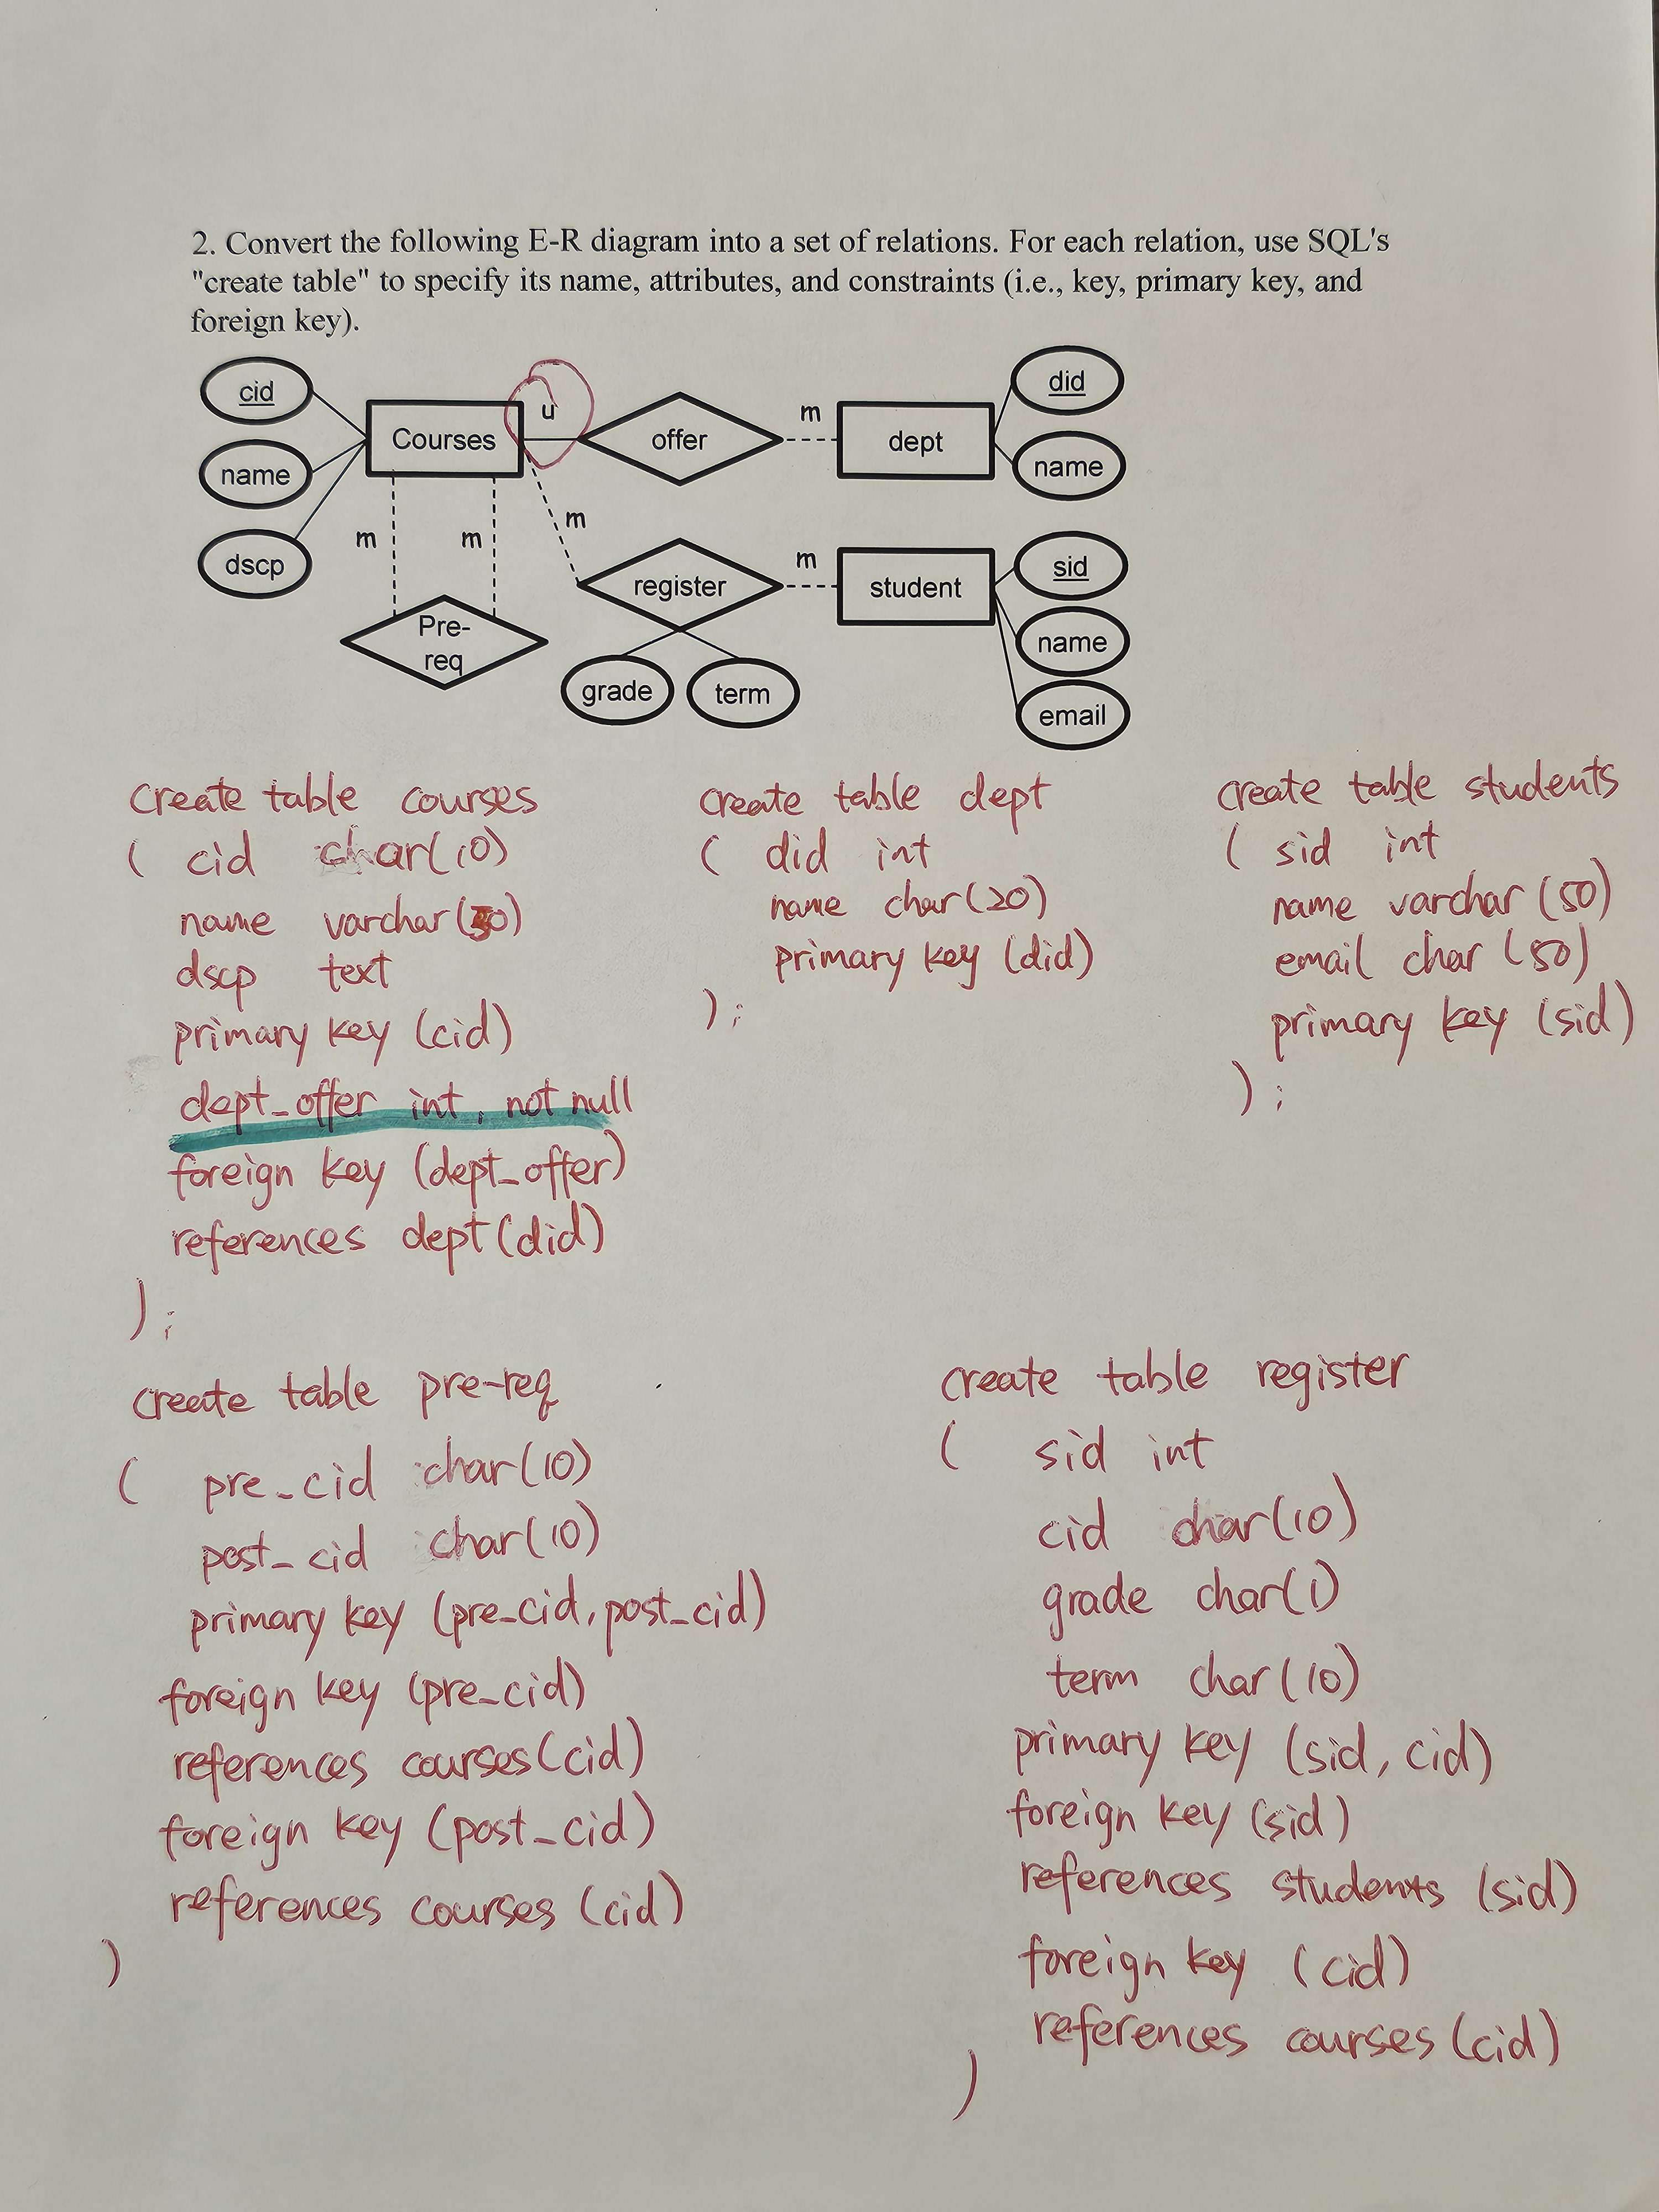 2. Convert the following E-R diagram into a set of relations. For each relation, use SQL's
"create table" to specify its name, attributes, and constraints (i.e., key, primary key, and
foreign key).
cid
name
dscp
Courses
u
offer
m
dept
did
name
m
m
Pre-
req
m
register
m
student
sid
name
email
grade
term
create table courses
( cid char(10)
name varchar(50)
dscp text
primary key (cid)
dept_offer int, not null
foreign key (dept_offer)
references dept(did)
);
create table dept
( did int
name char(20)
primary key (did)
);
create table students
( sid int
name varchar (50)
email char (50)
primary key (sid)
);
create table pre-req
( pre_cid char(10)
post_cid char(10)
primary key (pre_cid, post_cid)
foreign key (pre_cid)
references courses(cid)
foreign key (post_cid)
references courses (cid)
)
create table register
( sid int
cid char(10)
grade char(1)
term char(10)
primary key (sid, cid)
foreign key (sid)
references students (sid)
foreign key (cid)
references courses (cid)
)